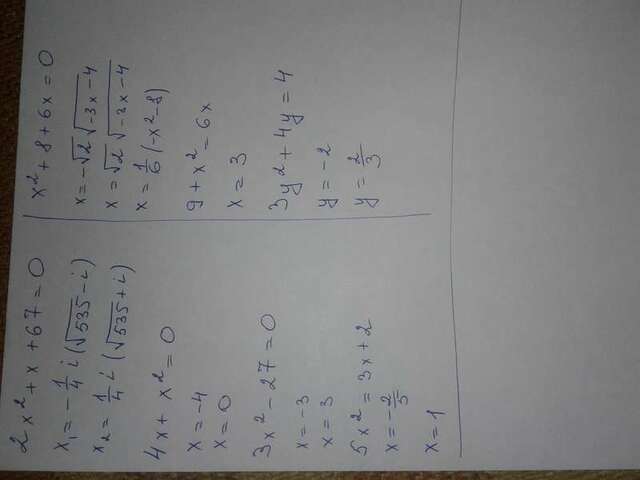 2x² + x + 67 = 0
x₁ = -1/4 i (√535 - i)
x₂ = 1/4 i (√535 + i)
4x + x² = 0
x = -4
x = 0
3x² - 27 = 0
x = -3
x = 3
5x² = 3x + 2
x = -2/5
x = 1
x² + 8 + 6x = 0
x = -√2 √-3x-4
x = √2 √-3x-4
x = 1/6 (-x² - 8)
9 + x² = 6x
x = 3
3y² + 4y = 4
y = -2
y = 2/3